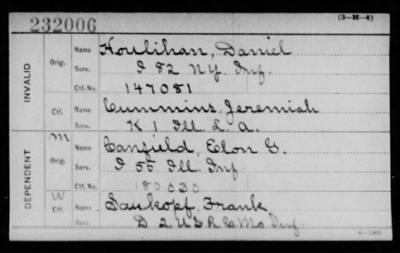 232006
(3-H-4)
INVALID
Orig.
Name Houlihan, Daniel
Serv. I 82 N.Y. Inf.
Ctf. No. 147081
Ctf.
Name Cummins, Jeremiah
Serv. K 1 Ill. L. A.
DEPENDENT
M
Orig.
Name Canfield, Elon G.
Serv. I 55 Ill. Inf.
Ctf. No. 180030
W
Ctf.
Name Saukopf, Frank
Serv. D 2 U S R C Mo Inf